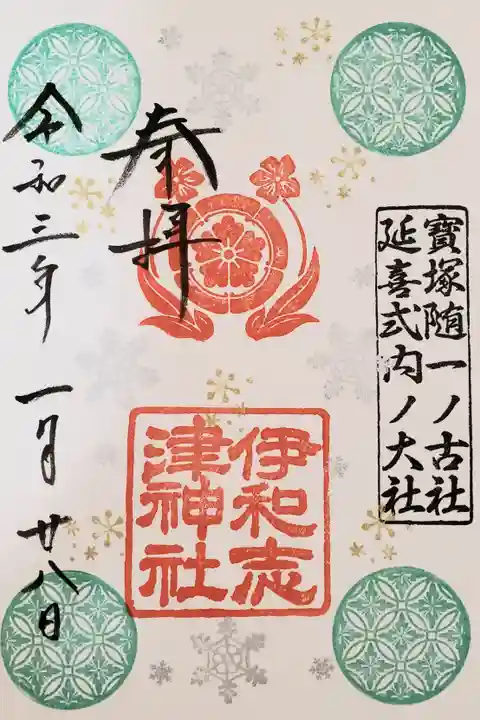 寶塚随一ノ古社
延喜式内ノ大社
奉拝
伊和志
津神社
令和三年一月廿八日